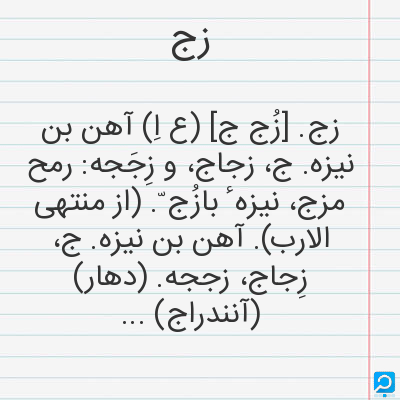 زج
زج. [زُج ج] (ع اِ) آهن بن
نیزه. ج، زجاج، و زِجَجه: رمح
مزج، نیزه ٔ بازُج ّ. (از منتهی
الارب). آهن بن نیزه. ج،
زِجاج، زججه. (دهار)
(آنندراج) ...